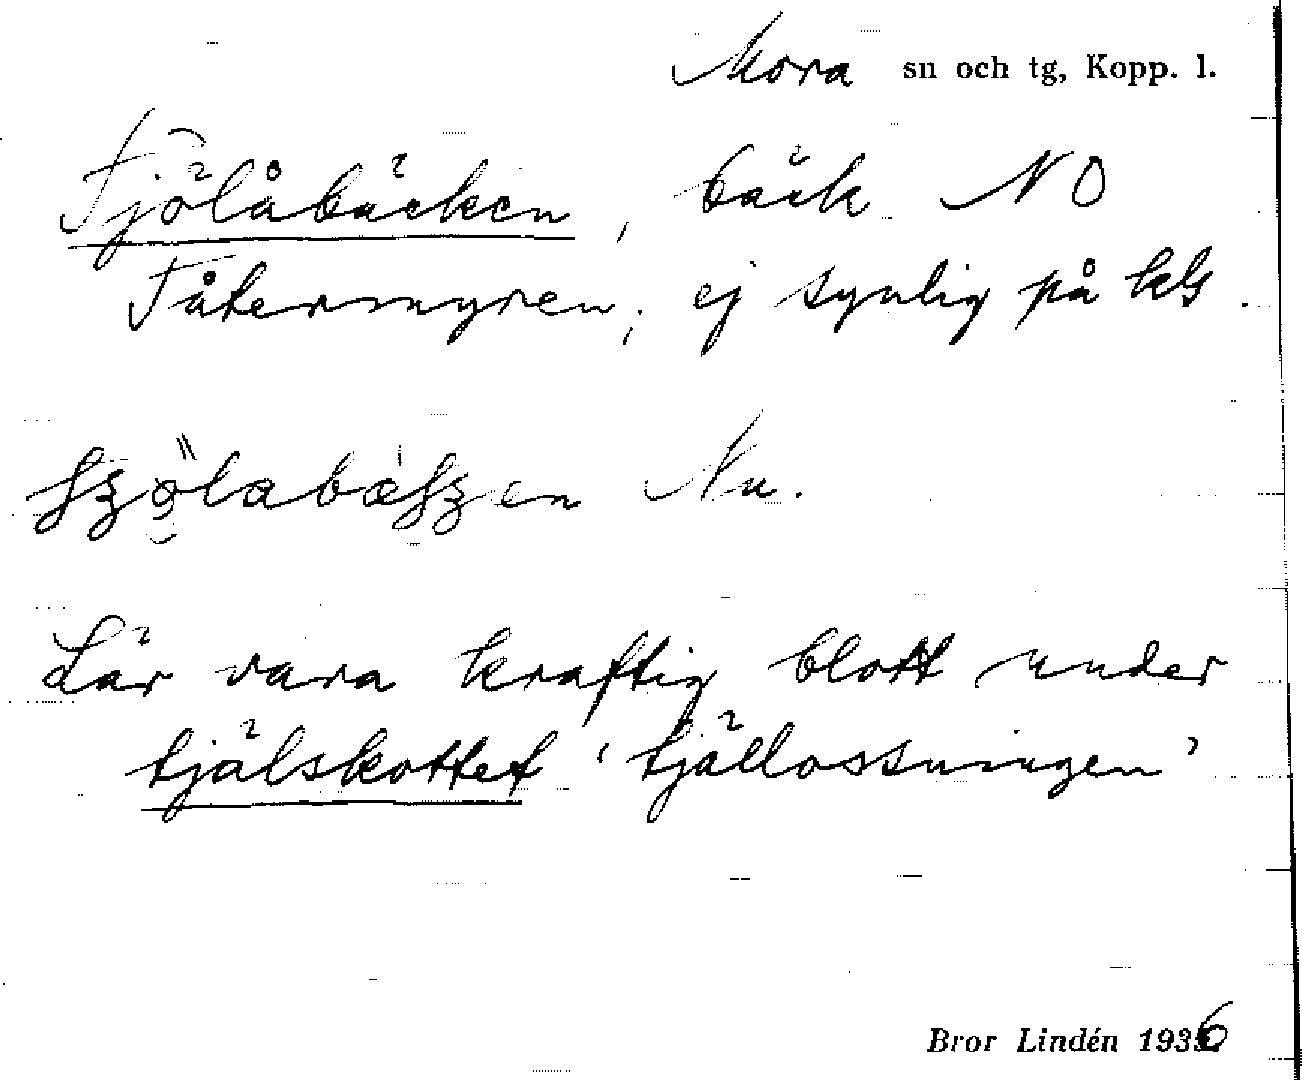 Mora sn och tg, Kopp. l.
Tjölåbäcken, bäck NO
Tåtermyren; ej synlig på kls.
Nu.
Lär vara kraftig blott under
tjälskottet 'tjällossningen'
Bror Lindén 1936